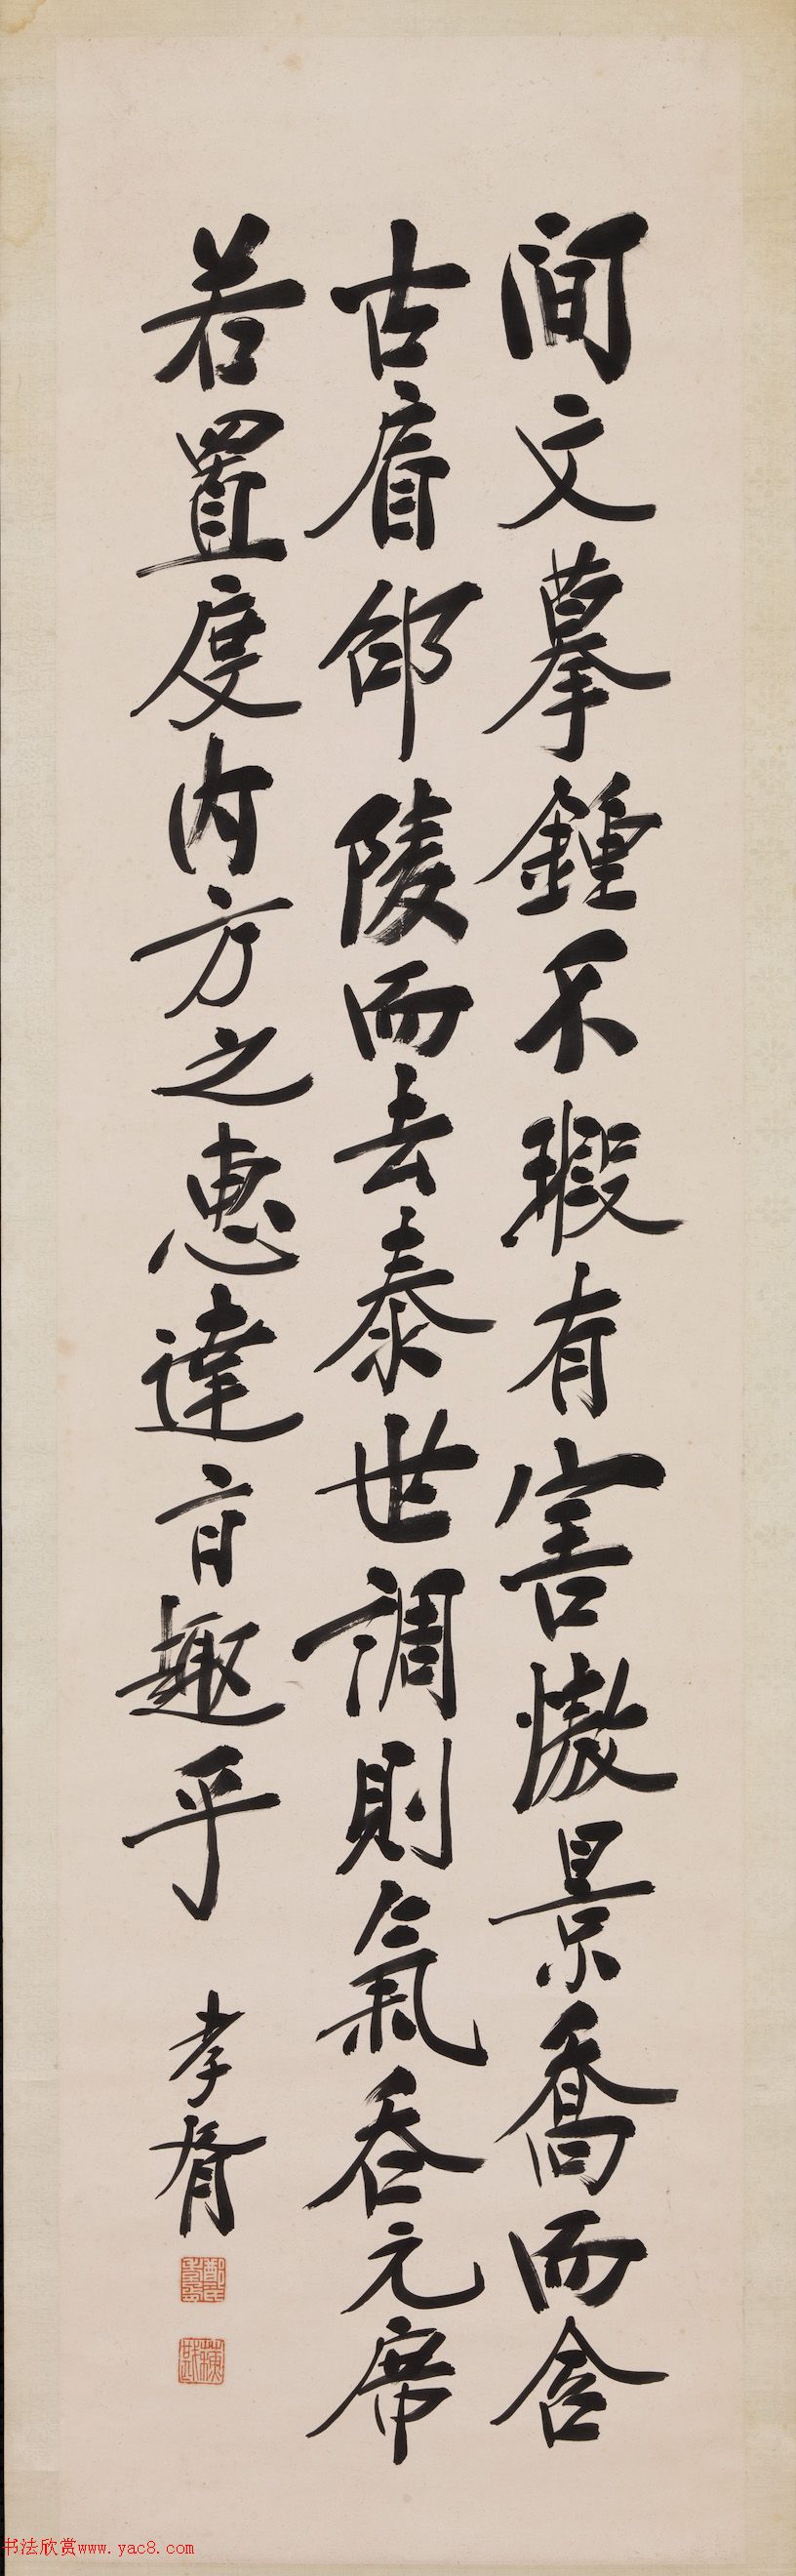 简文摹鍾不瑕有害憿景喬而含
古眉郃陵而去泰世調則氣吞元席
若置度内方之惠達音趣乎
孝胥
书法欣赏www.yac8.com